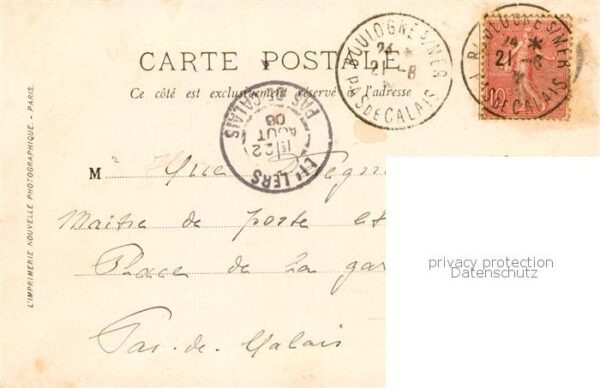 CARTE POSTALE
Ce côté est exclusivement réservé à l'adresse
BOULOGNE S/MER
24 *
21 -8
PAS DE CALAIS
BOULOGNE S/MER
24 *
21 -8
PAS DE CALAIS
10
LILLERS
1E
22
AOUT
06
PAS DE CALAIS
M
Maitre de poste et
Place de la gar
Pas-de-Calais
L'IMPRIMERIE NOUVELLE PHOTOGRAPHIQUE. - PARIS.
privacy protection
Datenschutz